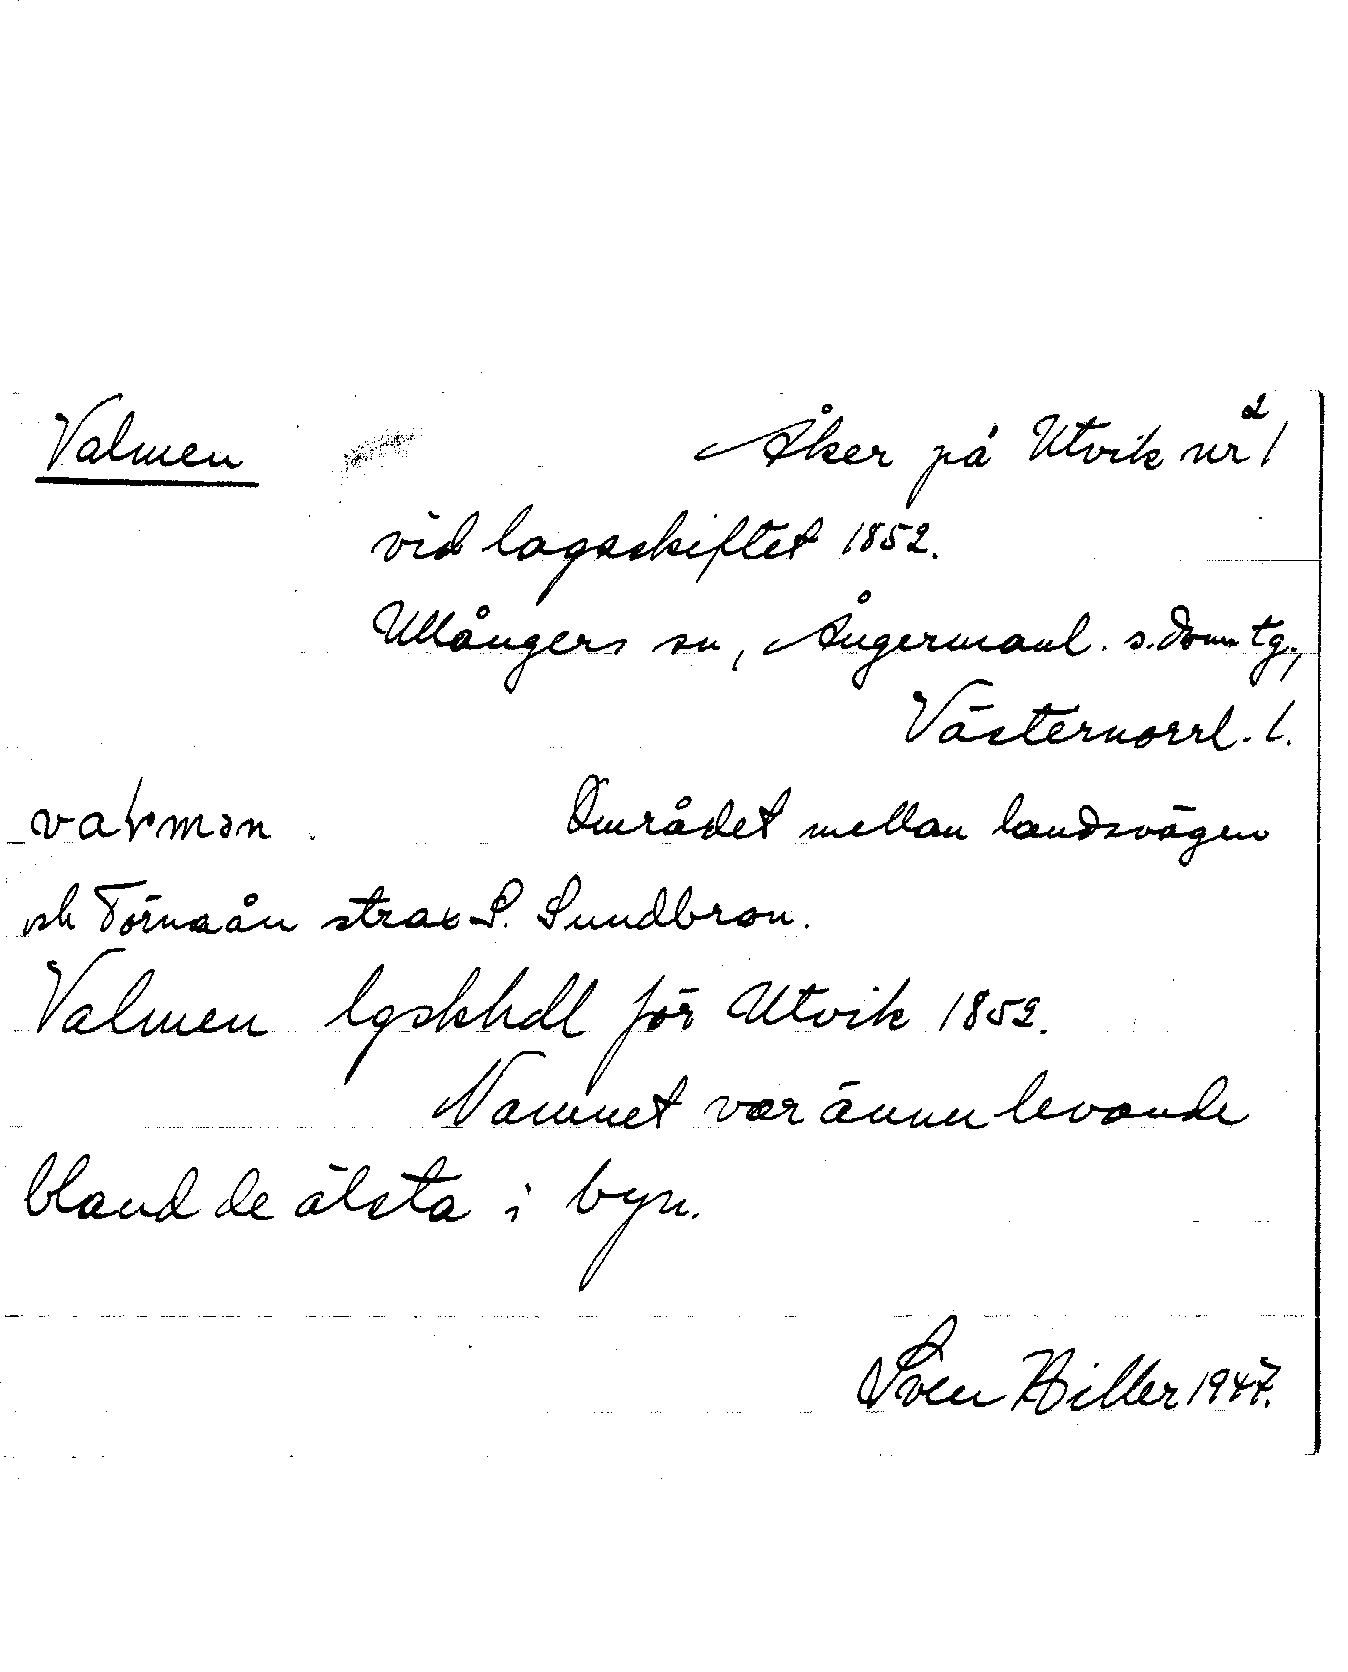 Valmen Åker på Utvik nr 1²
vid lagaskiftet 1852.
Ullångers sn, Ångermanl. s. doms tg.,
Västernorrl. l.
valmən. Området mellan landsvägen
och Törnaån strax S. Sundbron.
Valmen lgskhdl för Utvik 1852.
Namnet var ännu levande
bland de älsta i byn.
Sven Hiller 1947.